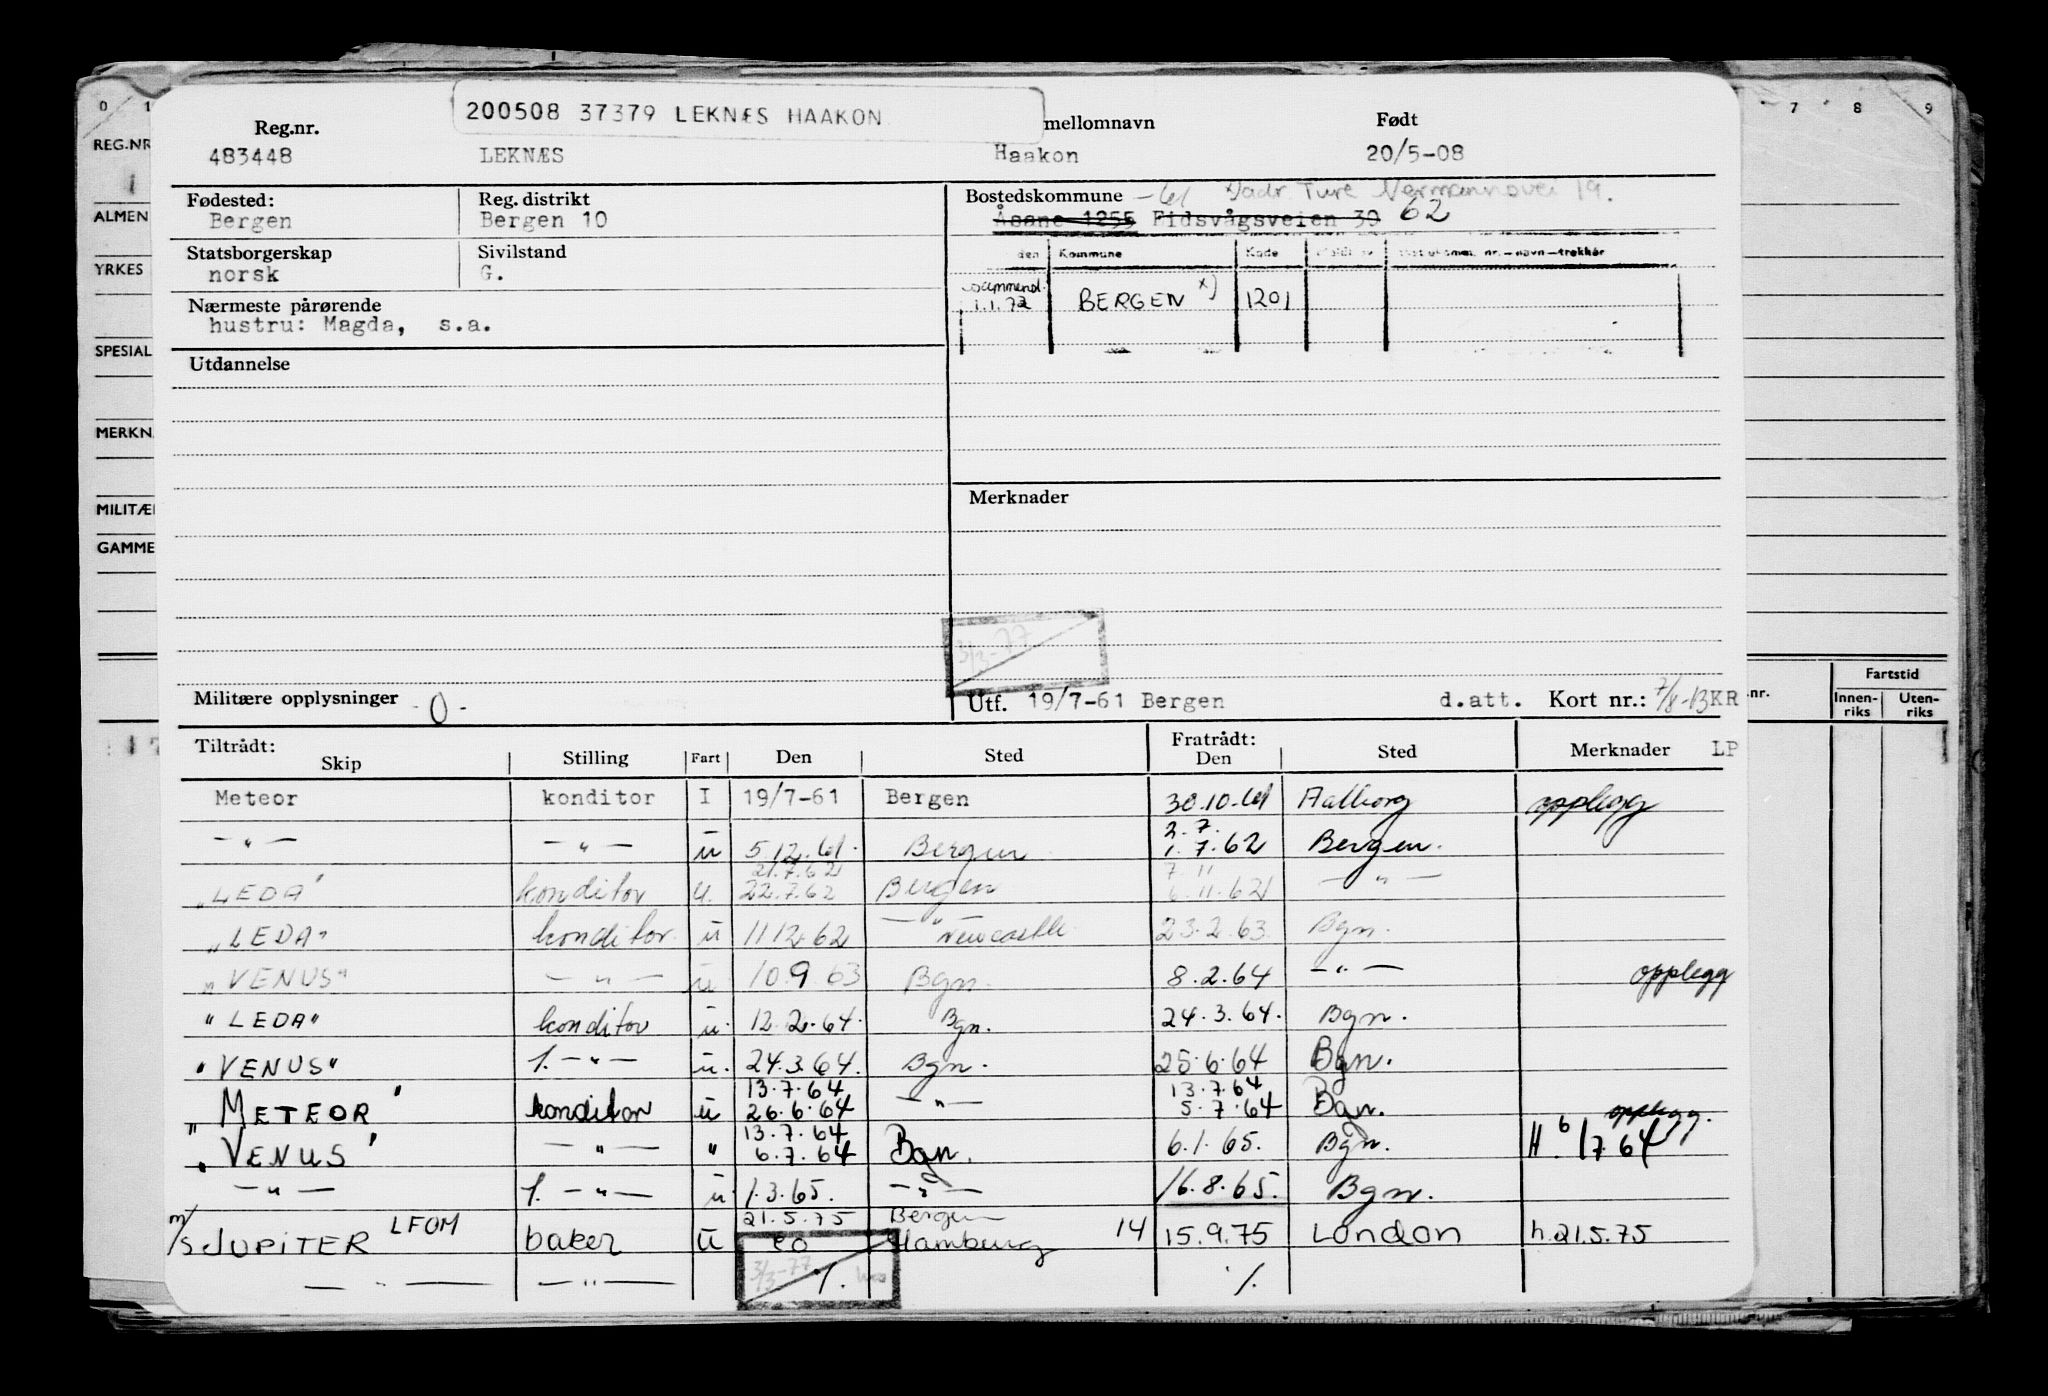 0 1 7 8 9
200508 37379 LEKNÆS HAAKON
Reg.nr. mellomnavn Født
REG.NR
483448 LEKNÆS Haakon 20/5-08
Fødested: Reg. distrikt Bostedskommune -61
ALMEN Bergen Bergen 10 Åsane 1255 Eidsvågsveien 39 62
Statsborgerskap Sivilstand den Kommune Kode
YRKES norsk G.
Nærmeste pårørende 1.1.72 BERGEN x) 1201
hustru: Magda, s.a.
SPESIAL
Utdannelse
MERKN
Merknader
MILITÆ
GAMME
3/3-77
Fartstid
Militære opplysninger -0- Utf. 19/7-61 Bergen d.att. Kort nr.: 7/8-13 KR nr. Innen-riks Uten-riks
Tiltrådt: Fratrådt:
Skip Stilling Fart Den Sted Den Sted Merknader LP
Meteor konditor I 19/7-61 Bergen 30.10.61 Aalborg opplegg
2.7.
— " — — " — u 5.12.61. Bergen 1.7.62 Bergen.
21.7.62 7.11
"LEDA" konditor u. 22.7.62 Bergen 6.11.62 — " —
"LEDA" konditor. u 11.12.62 — " — Newcastle. 23.2.63. Bgn.
"VENUS" — " — u 10.9.63 Bgn. 8.2.64 — " — opplegg
"LEDA" konditor u. 12.2.64. Bgn. 24.3.64. Bgn.
"VENUS" 1. — " — u. 24.3.64. Bgn. 25.6.64 Bgn.
13.7.64 13.7.64
"METEOR" konditor u 26.6.64 — " — 5.7.64 Bgn. opplegg.
13.7.64
"VENUS" — " — " 6.7.64 Bgn. 6.1.65. Bgn. H. 6/7.64
— " — 1. — " — u. 1.3.65. — " — 16.8.65. Bgn.
21.5.75 Bergen
m/s JUPITER LFOM baker u 20 Hamburg 14 15.9.75 London h.21.5.75
— " — — " — 3/3-77 %. %.